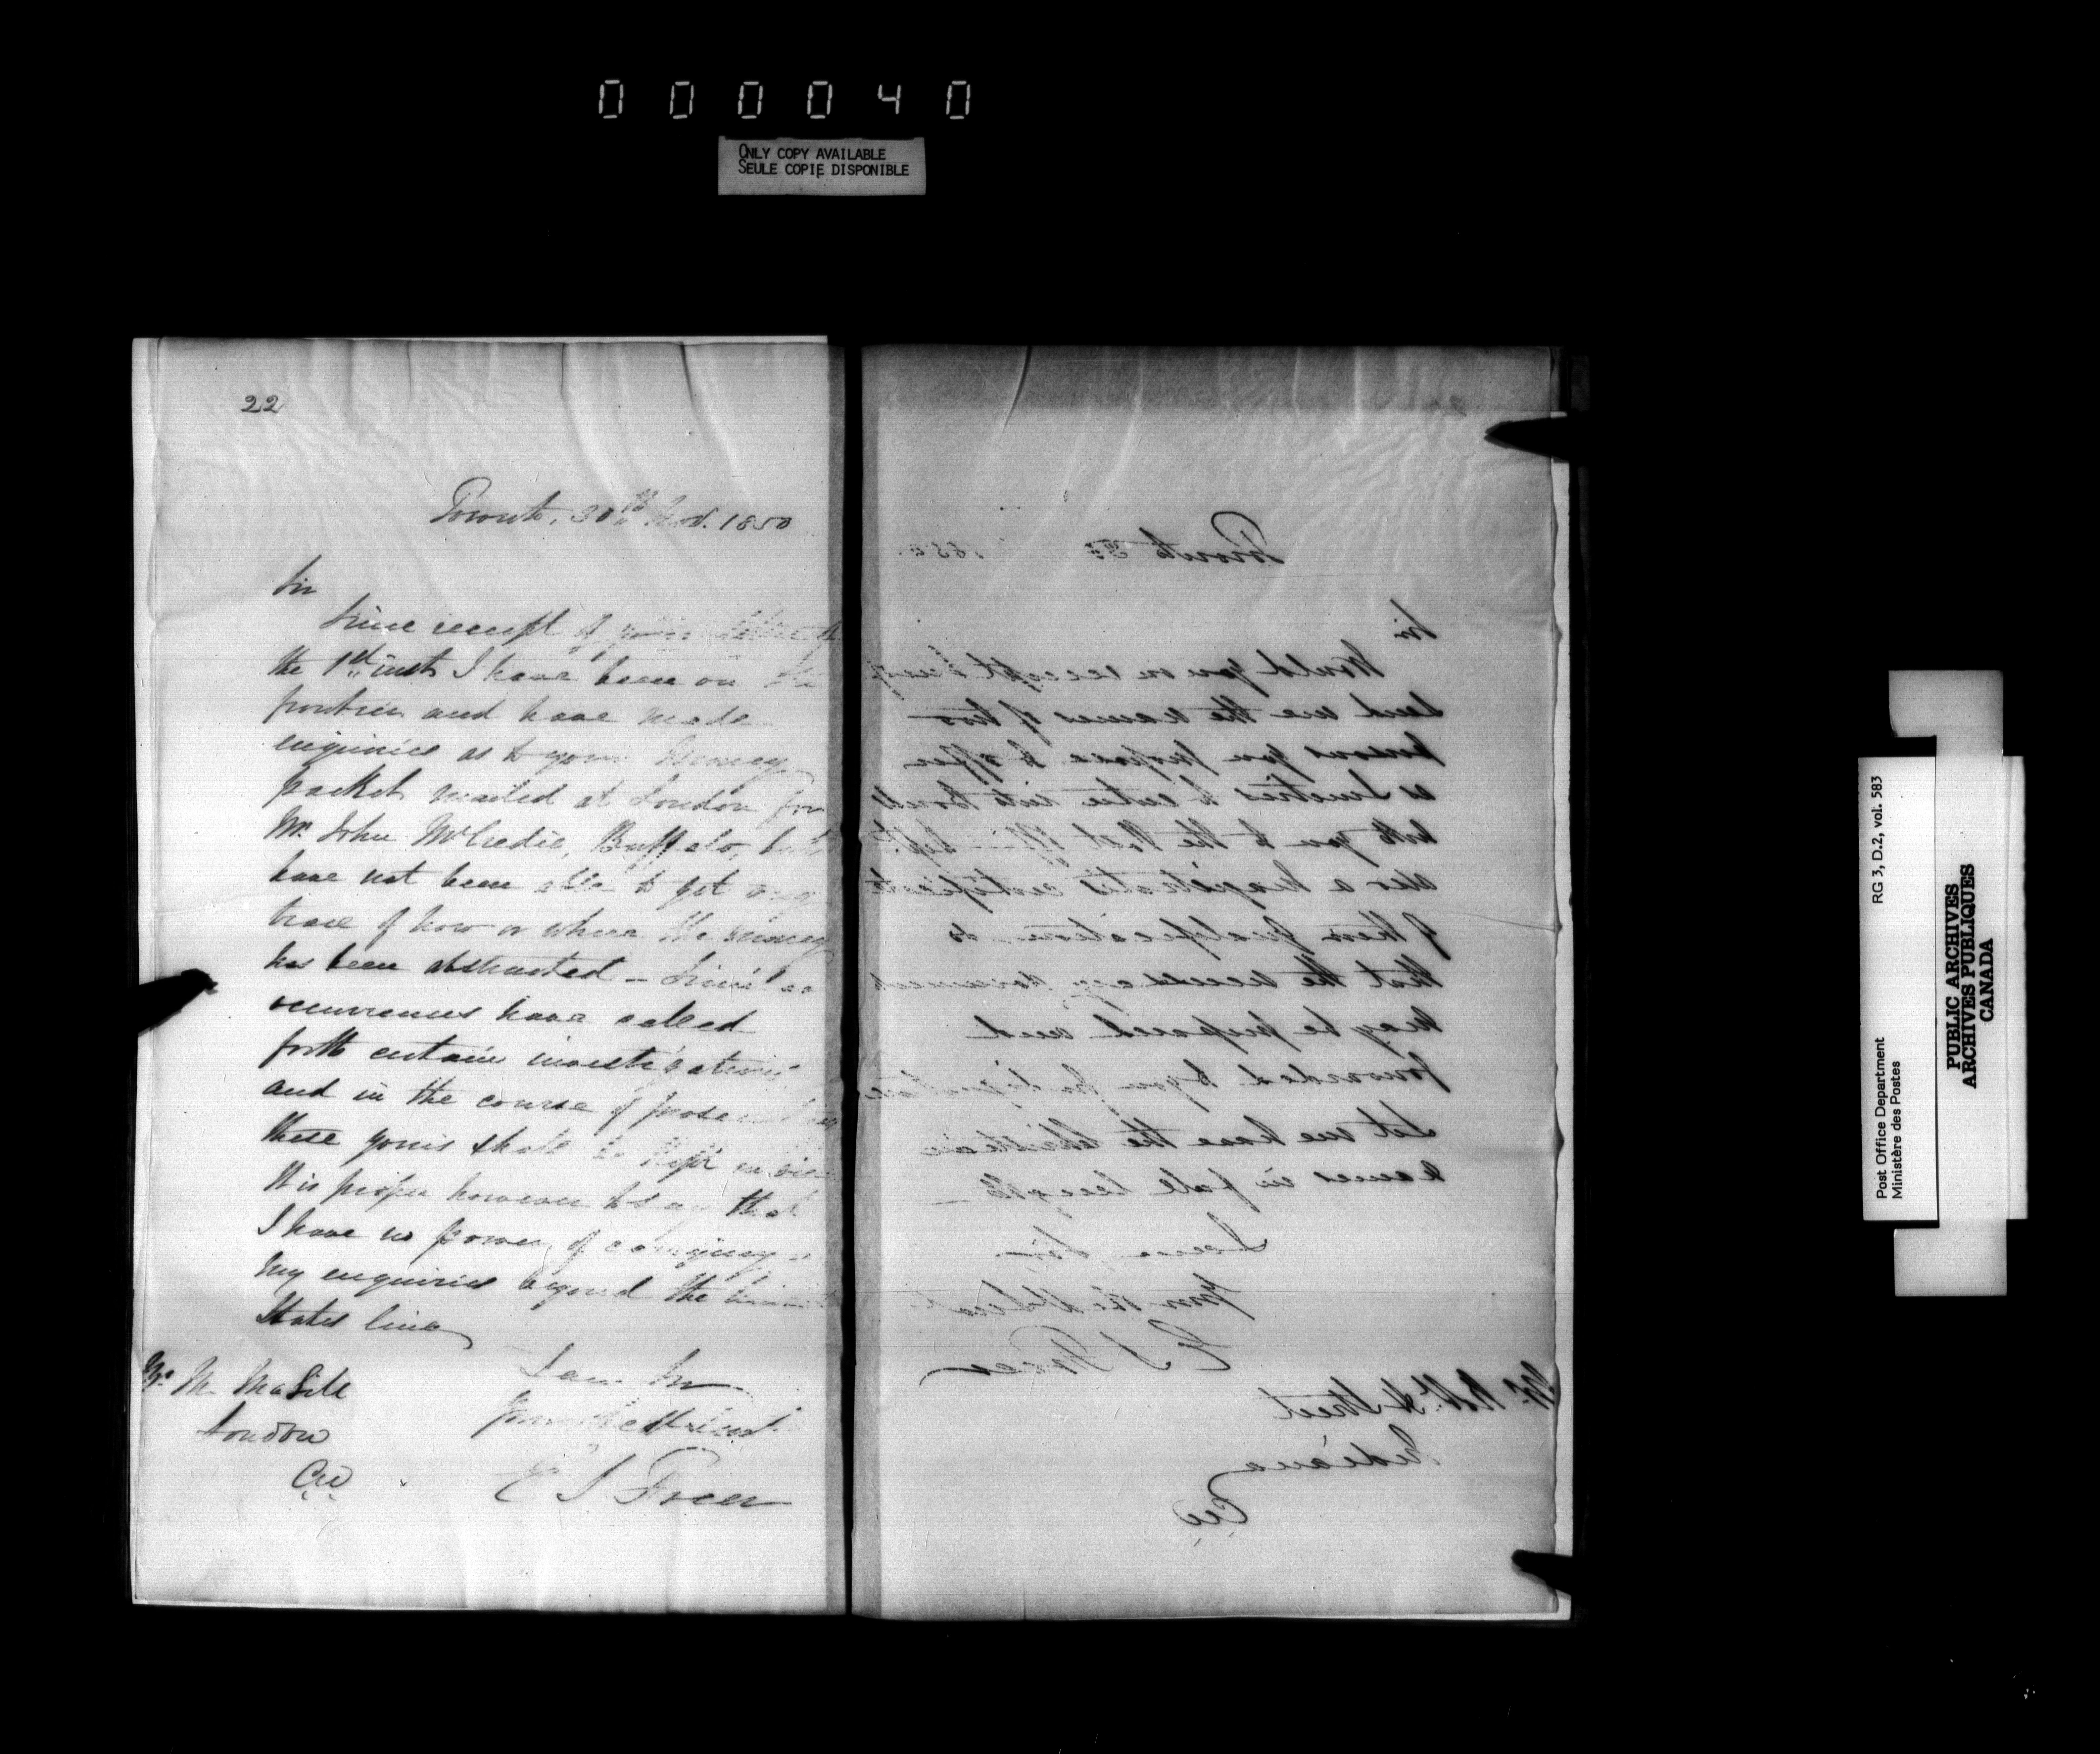 0 0 0 0 4 0
ONLY COPY AVAILABLE
SEULE COPIE DISPONIBLE
22
Toronto, 30th Nov. 1850
Sir
Since receipt of your letter of
the 1st inst I have been on the
frontier and have made
enquiries as to your money
packet mailed at London for
Mr. John McCredie, Buffalo, but
have not been able to get any
trace of how or where the money
has been abstracted – Similar
occurrences have called
forth certain investigations
and in the course of prosecuting
these yours shall be kept in view
It is proper however to say that
I have no power of carrying
my enquiries beyond the United
States line
I am Sir
Your Obt Servt
E S Freer
Mr. M.
London
CW
Toronto 1850.
Sir
Would you on receipt
send me the names of two
persons you propose to offer
as Sureties to enter into Bond
with you to the Post Office Dept.
also a Magistrate's certificate
of their qualification so
that the necessary documents
may be prepared and
forwarded to you for
Let me have the Christian
names in full length –
I am Sir
Your Obt Servt
E S Freer
Mr. Street
Indiana
CW
RG 3, D.2, vol. 583
Post Office Department
Ministère des Postes
PUBLIC ARCHIVES
ARCHIVES PUBLIQUES
CANADA